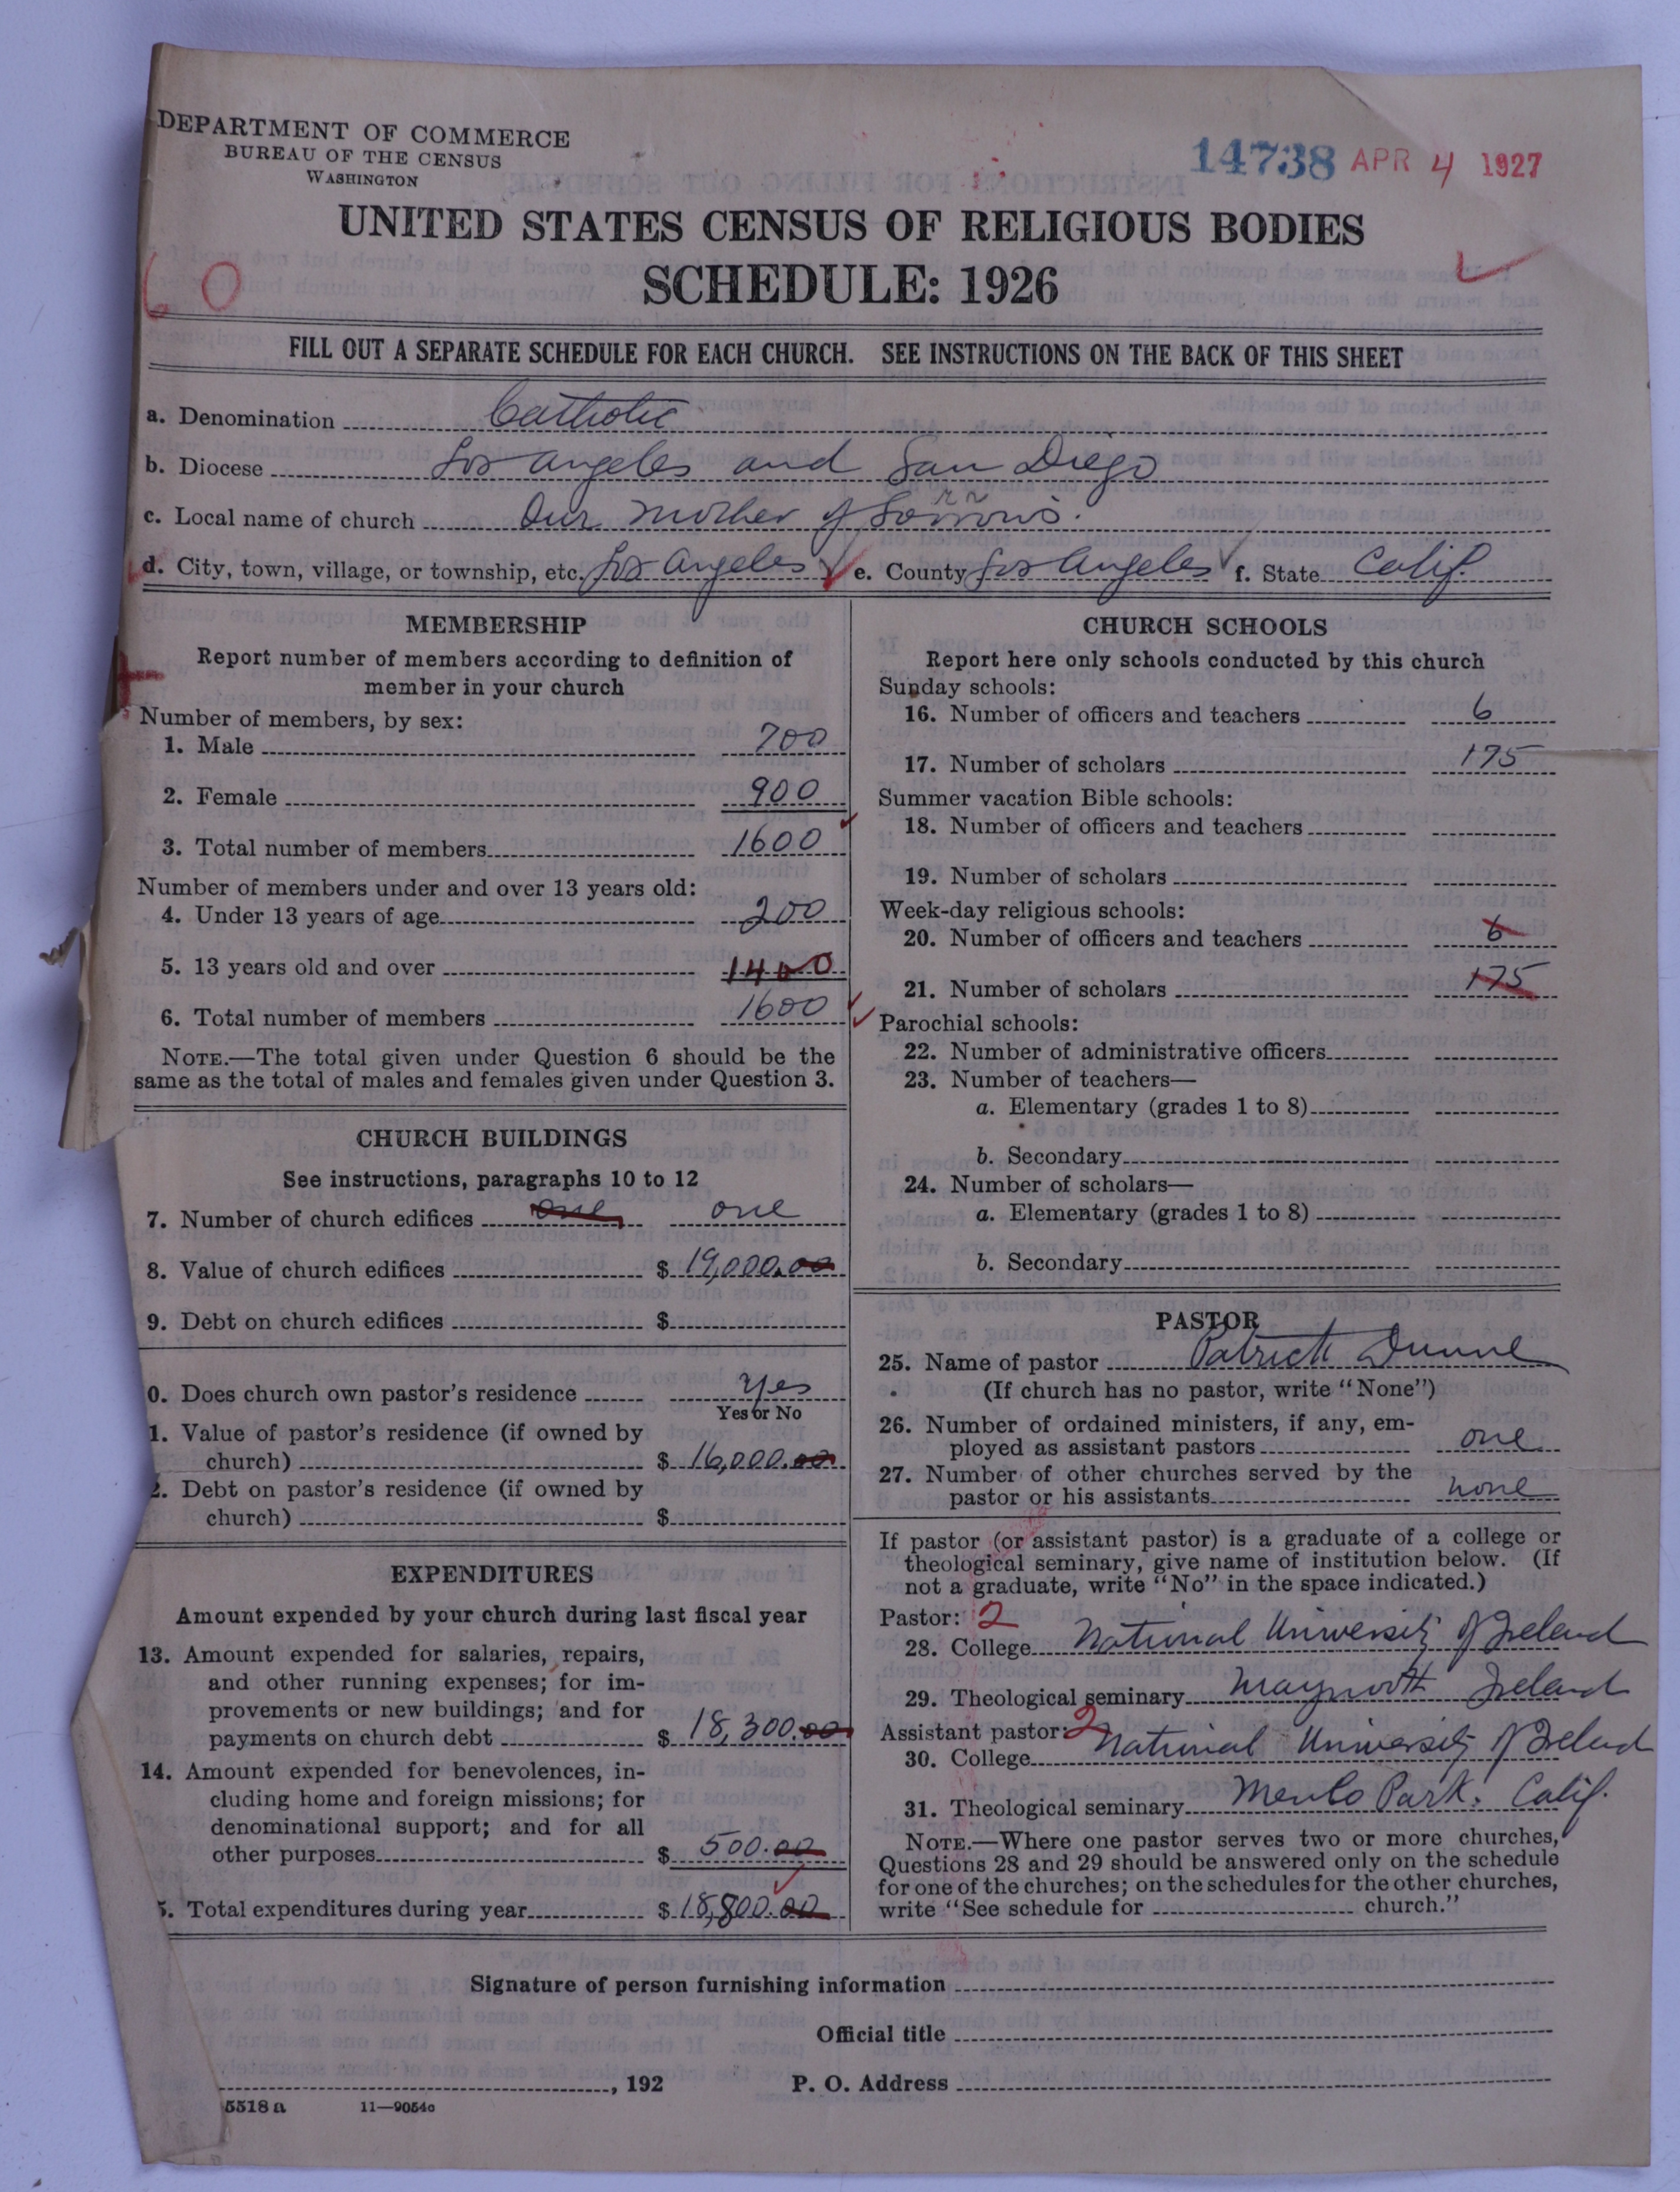 DEPARTMENT OF COMMERCE
BUREAU OF THE CENSUS
WASHINGTON
14738 APR 4 1927
UNITED STATES CENSUS OF RELIGIOUS BODIES
SCHEDULE: 1926
60
FILL OUT A SEPARATE SCHEDULE FOR EACH CHURCH. SEE INSTRUCTIONS ON THE BACK OF THIS SHEET
a. Denomination Catholic
b. Diocese Los Angeles and San Diego
c. Local name of church Our Mother of Sorrows.
d. City, town, village, or township, etc. Los Angeles e. County Los Angeles f. State Calif.
MEMBERSHIP
Report number of members according to definition of
member in your church
Number of members, by sex:
1. Male 700
2. Female 900
3. Total number of members 1600
Number of members under and over 13 years old:
4. Under 13 years of age 200
5. 13 years old and over 1400
6. Total number of members 1600
NOTE.—The total given under Question 6 should be the
same as the total of males and females given under Question 3.
CHURCH BUILDINGS
See instructions, paragraphs 10 to 12
7. Number of church edifices one one
8. Value of church edifices $ 19,000.00
9. Debt on church edifices $
0. Does church own pastor's residence yes
Yes or No
1. Value of pastor's residence (if owned by
church) $ 16,000.00
2. Debt on pastor's residence (if owned by
church) $
EXPENDITURES
Amount expended by your church during last fiscal year
13. Amount expended for salaries, repairs,
and other running expenses; for im-
provements or new buildings; and for
payments on church debt $ 18,300.00
14. Amount expended for benevolences, in-
cluding home and foreign missions; for
denominational support; and for all
other purposes $ 500.00
5. Total expenditures during year $ 18,800.00
CHURCH SCHOOLS
Report here only schools conducted by this church
Sunday schools:
16. Number of officers and teachers 6
17. Number of scholars 175
Summer vacation Bible schools:
18. Number of officers and teachers
19. Number of scholars
Week-day religious schools:
20. Number of officers and teachers 6
21. Number of scholars 175
Parochial schools:
22. Number of administrative officers
23. Number of teachers—
a. Elementary (grades 1 to 8)
b. Secondary
24. Number of scholars—
a. Elementary (grades 1 to 8)
b. Secondary
PASTOR
25. Name of pastor Patrick Dunne
(If church has no pastor, write "None")
26. Number of ordained ministers, if any, em-
ployed as assistant pastors one
27. Number of other churches served by the
pastor or his assistants none
If pastor (or assistant pastor) is a graduate of a college or
theological seminary, give name of institution below. (If
not a graduate, write "No" in the space indicated.)
Pastor: 2
28. College National University of Ireland
29. Theological seminary Maynooth Ireland
Assistant pastor: 2
30. College National University of Ireland
31. Theological seminary Menlo Park. Calif.
NOTE.—Where one pastor serves two or more churches,
Questions 28 and 29 should be answered only on the schedule
for one of the churches; on the schedules for the other churches,
write "See schedule for church."
Signature of person furnishing information
Official title
, 192 P. O. Address
5518 a 11—9054c